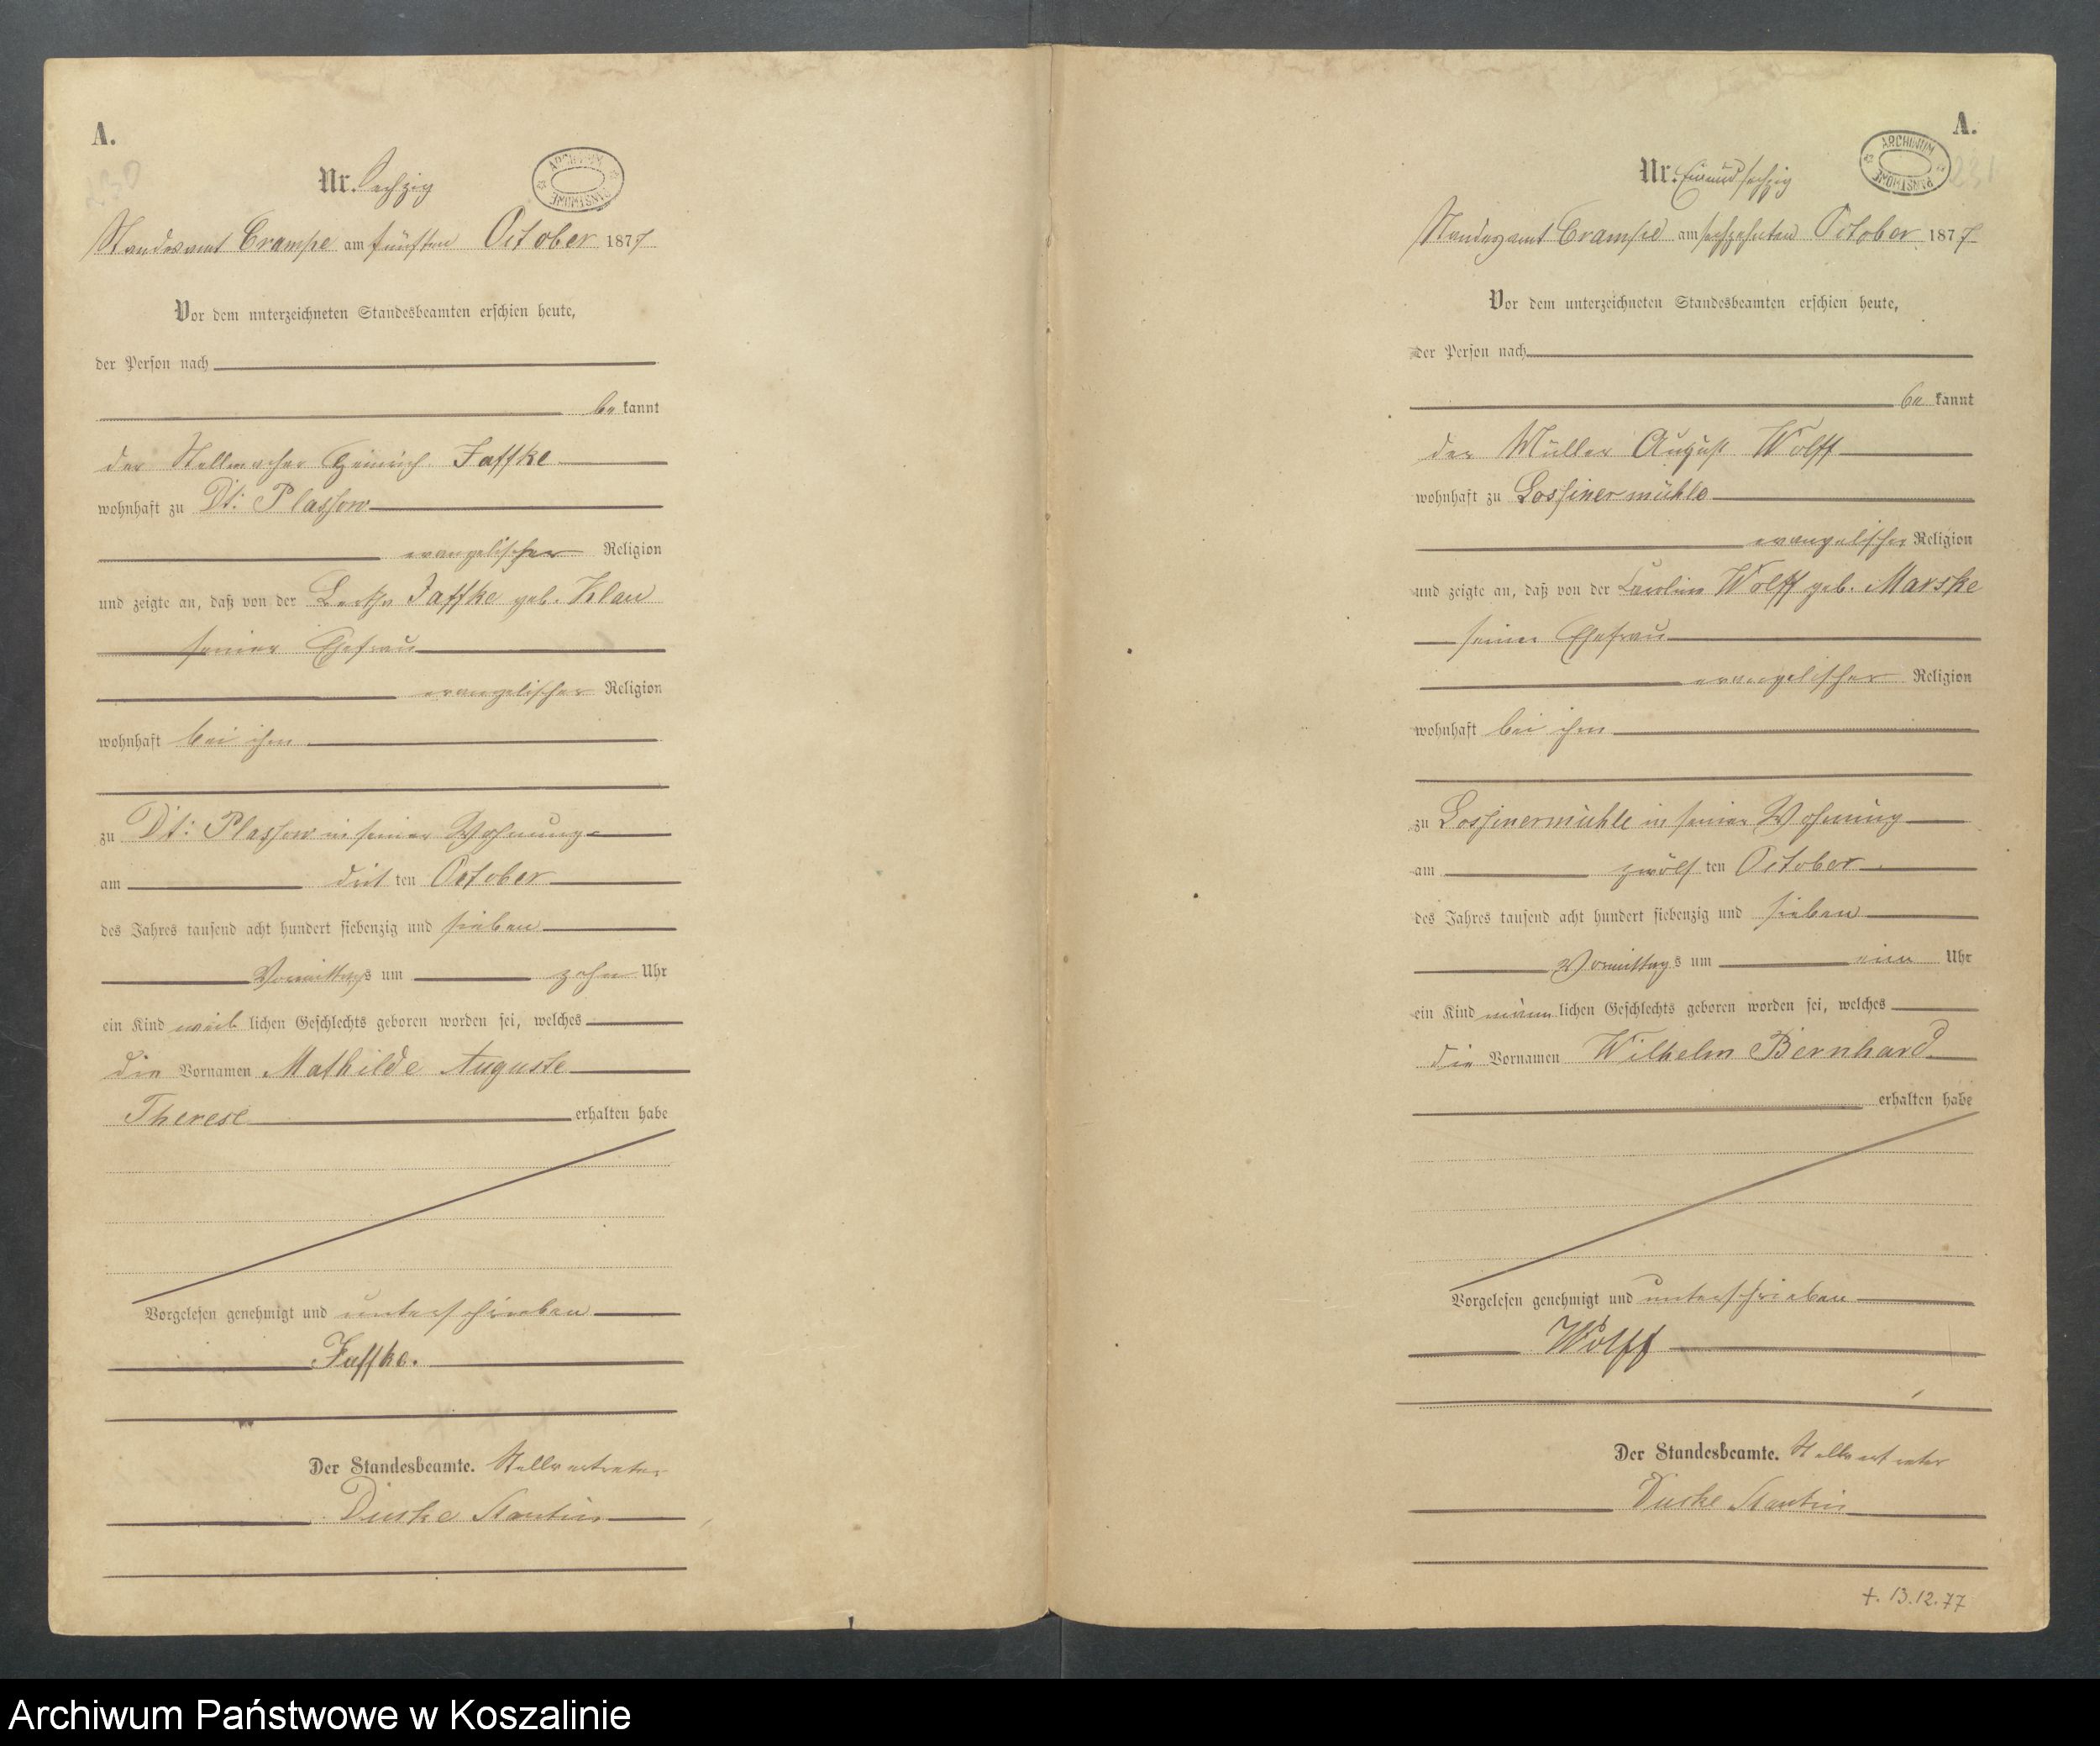 A.
Nr. Sechzig
ARCHIWUM PAŃSTWOWE
Standesamt Crampe am fünften October 1877
Vor dem unterzeichneten Standesbeamten erschien heute,
der Person nach
be kannt
der Stellmacher Heinrich Jaffke
wohnhaft zu Dt: Plassow
evangelischer Religion
und zeigte an, daß von der Jaffke geb. Klau
seiner Ehefrau
evangelischer Religion
wohnhaft bei ihm
zu Dt: Plassow in seiner Wohnung
am drit ten October
des Jahres tausend acht hundert siebenzig und sieben
Vormittags um zehn Uhr
ein Kind weib lichen Geschlechts geboren worden sei, welches
die Vornamen Mathilde Auguste
Therese erhalten habe
Vorgelesen genehmigt und unterschrieben
Jaffke.
Der Standesbeamte. Stellvertreter
Duske
A.
231
Nr. Einundsechzig
ARCHIWUM PAŃSTWOWE
Standesamt Crampe am sechzehnten October 1877
Vor dem unterzeichneten Standesbeamten erschien heute,
der Person nach
be kannt
der Müller August Wolff
wohnhaft zu Lossinermühle
evangelischer Religion
und zeigte an, daß von der Caroline Wolff geb. Marske
seiner Ehefrau
evangelischer Religion
wohnhaft bei ihm
zu Lossinermühle in seiner Wohnung
am zwölf ten October
des Jahres tausend acht hundert siebenzig und sieben
Vormittags um ein Uhr
ein Kind männ lichen Geschlechts geboren worden sei, welches
die Vornamen Wilhelm Bernhard
erhalten habe
Vorgelesen genehmigt und unterschrieben
Wolff
Der Standesbeamte. Stellvertreter
Duske
+. 13.12.77
Archiwum Państwowe w Koszalinie